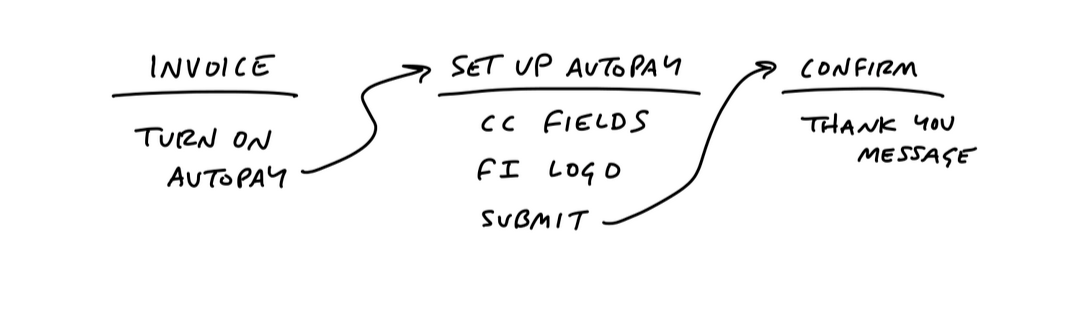 INVOICE
TURN ON
AUTOPAY
SET UP AUTOPAY
CC FIELDS
FI LOGO
SUBMIT
CONFIRM
THANK YOU
MESSAGE